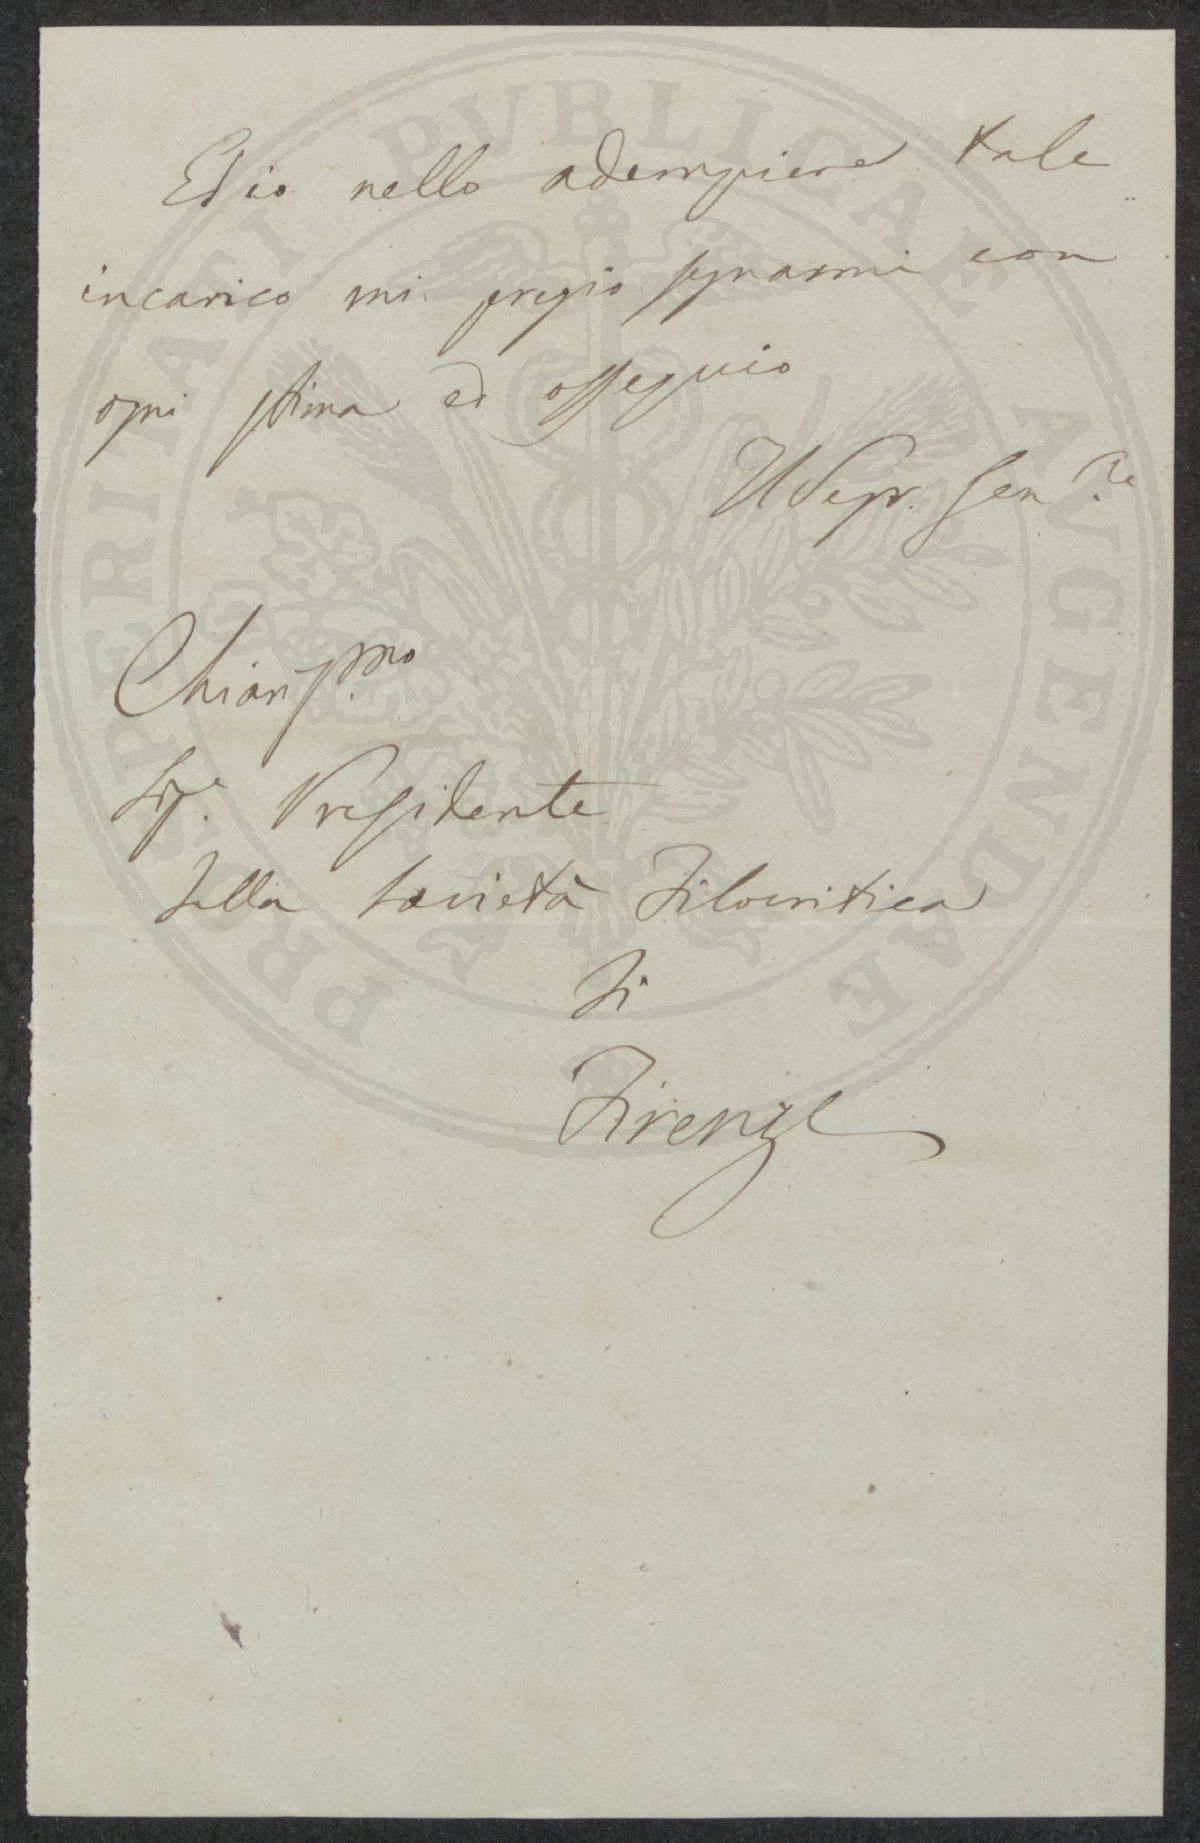 Ed io nello adempiere tale
incarico mi pregio segnarmi con
ogni stima ed ossequio
Il Segr. Gen.le
Chiariss.mo
Sig.r Presidente
della Società Filocritica
di
Firenze
PROSPERITATI PVBLICAE AVGENDAE